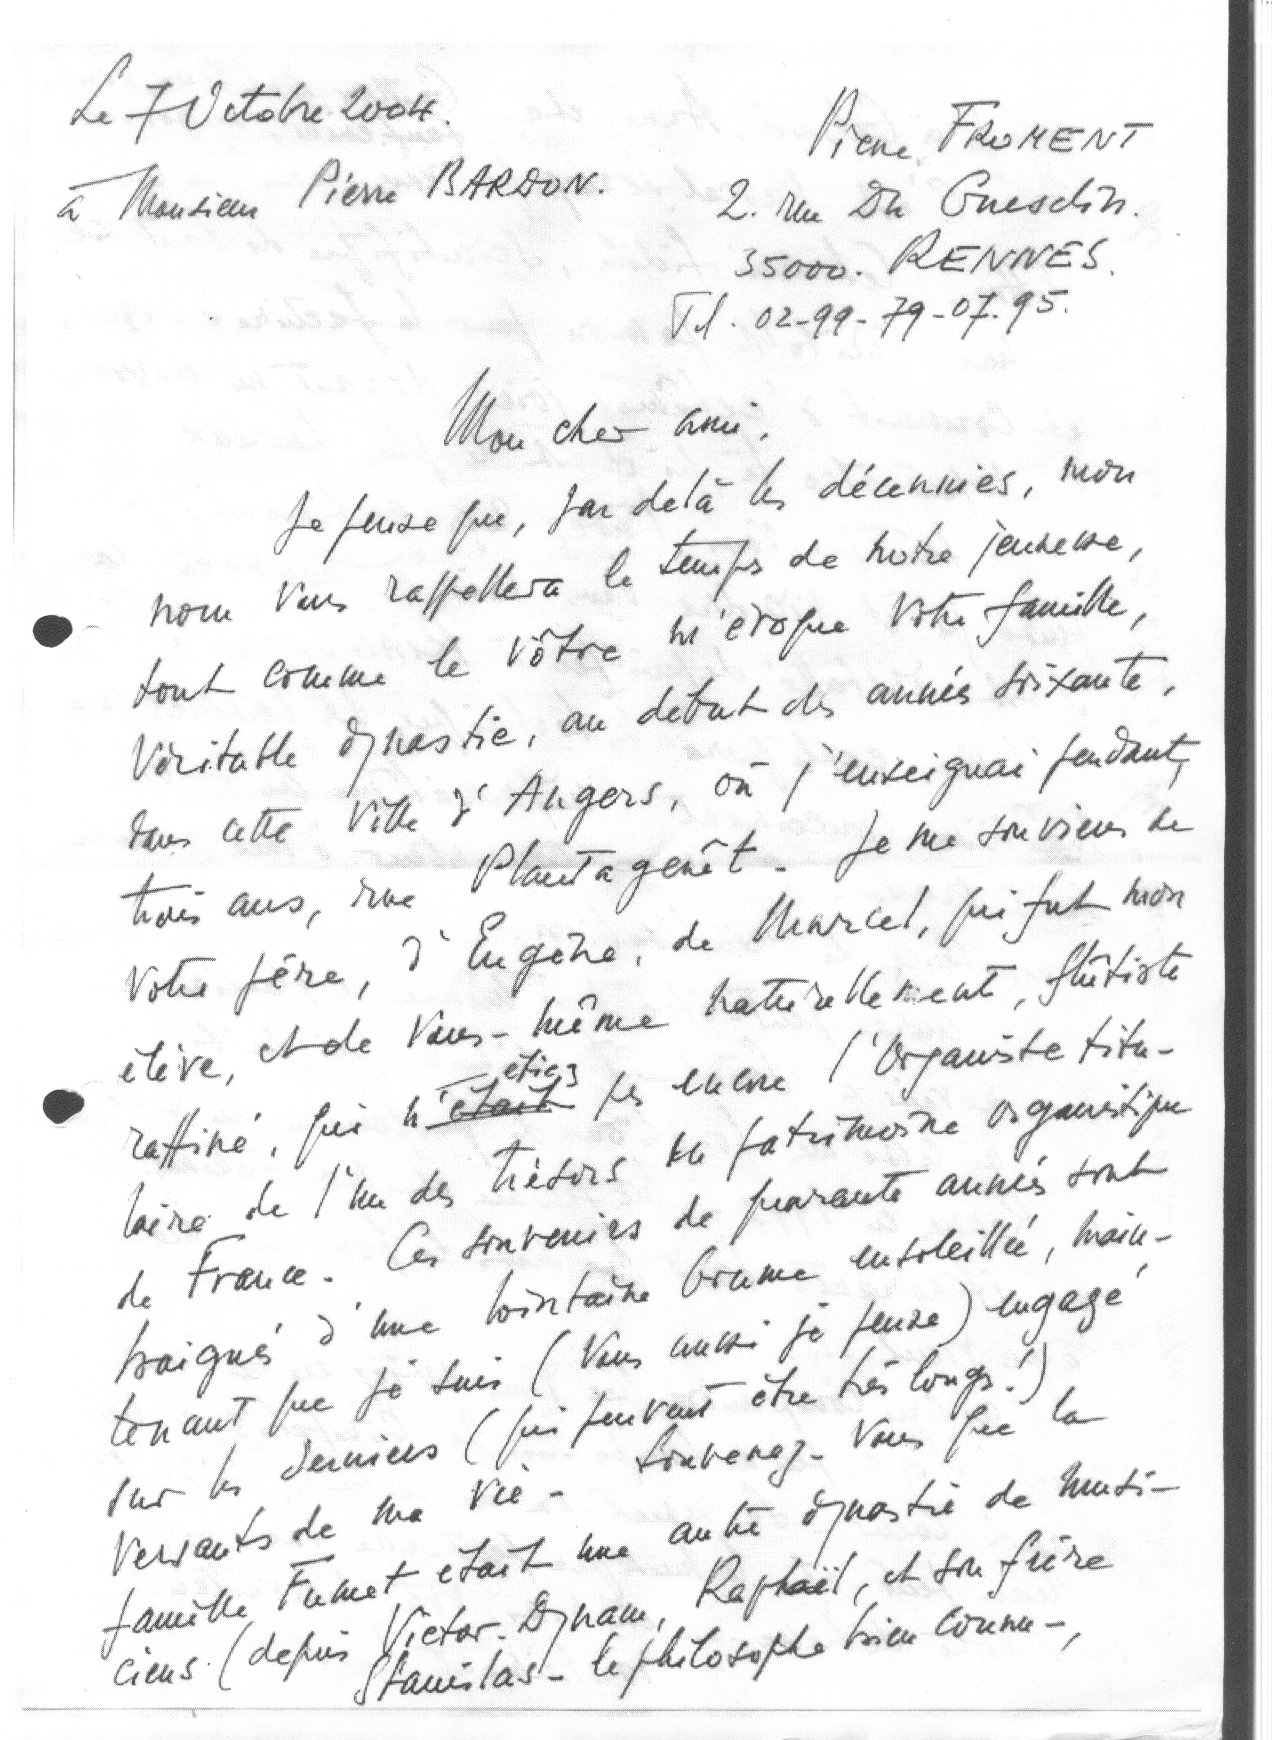 Le 7 Octobre 2004.
à Monsieur Pierre BARDON.
Pierre FROMENT
2. rue Du Guesclin.
35000. RENNES.
Tel. 02-99-79-07.95.
Mon cher ami,
Je pense que, par delà les décennies, mon
nom vous rappellera le temps de notre jeunesse,
tout comme le vôtre m'évoque votre famille,
véritable dynastie, au début des années soixante,
dans cette ville d'Angers, où j'enseignai pendant
trois ans, rue Plantagenêt. Je me souviens de
votre père, d'Eugène, de Marcel, qui fut mon
élève, et de vous-même naturellement, flûtiste
raffiné, qui n'était étiez pas encore l'organiste titu-
laire de l'un des trésors du patrimoine organistique
de France. Ces souvenirs de quarante années sont
baignés d'une lointaine brume ensoleillée, main-
tenant que je suis (vous aussi je pense) engagé
sur les derniers (qui peuvent être très longs!)
versants de ma vie. Souvenez-vous que la
famille Fumet était une autre dynastie de musi-
ciens (depuis Victor-Dynam, Raphaël, et son frère
Stanislas - le philosophe bien connu -,